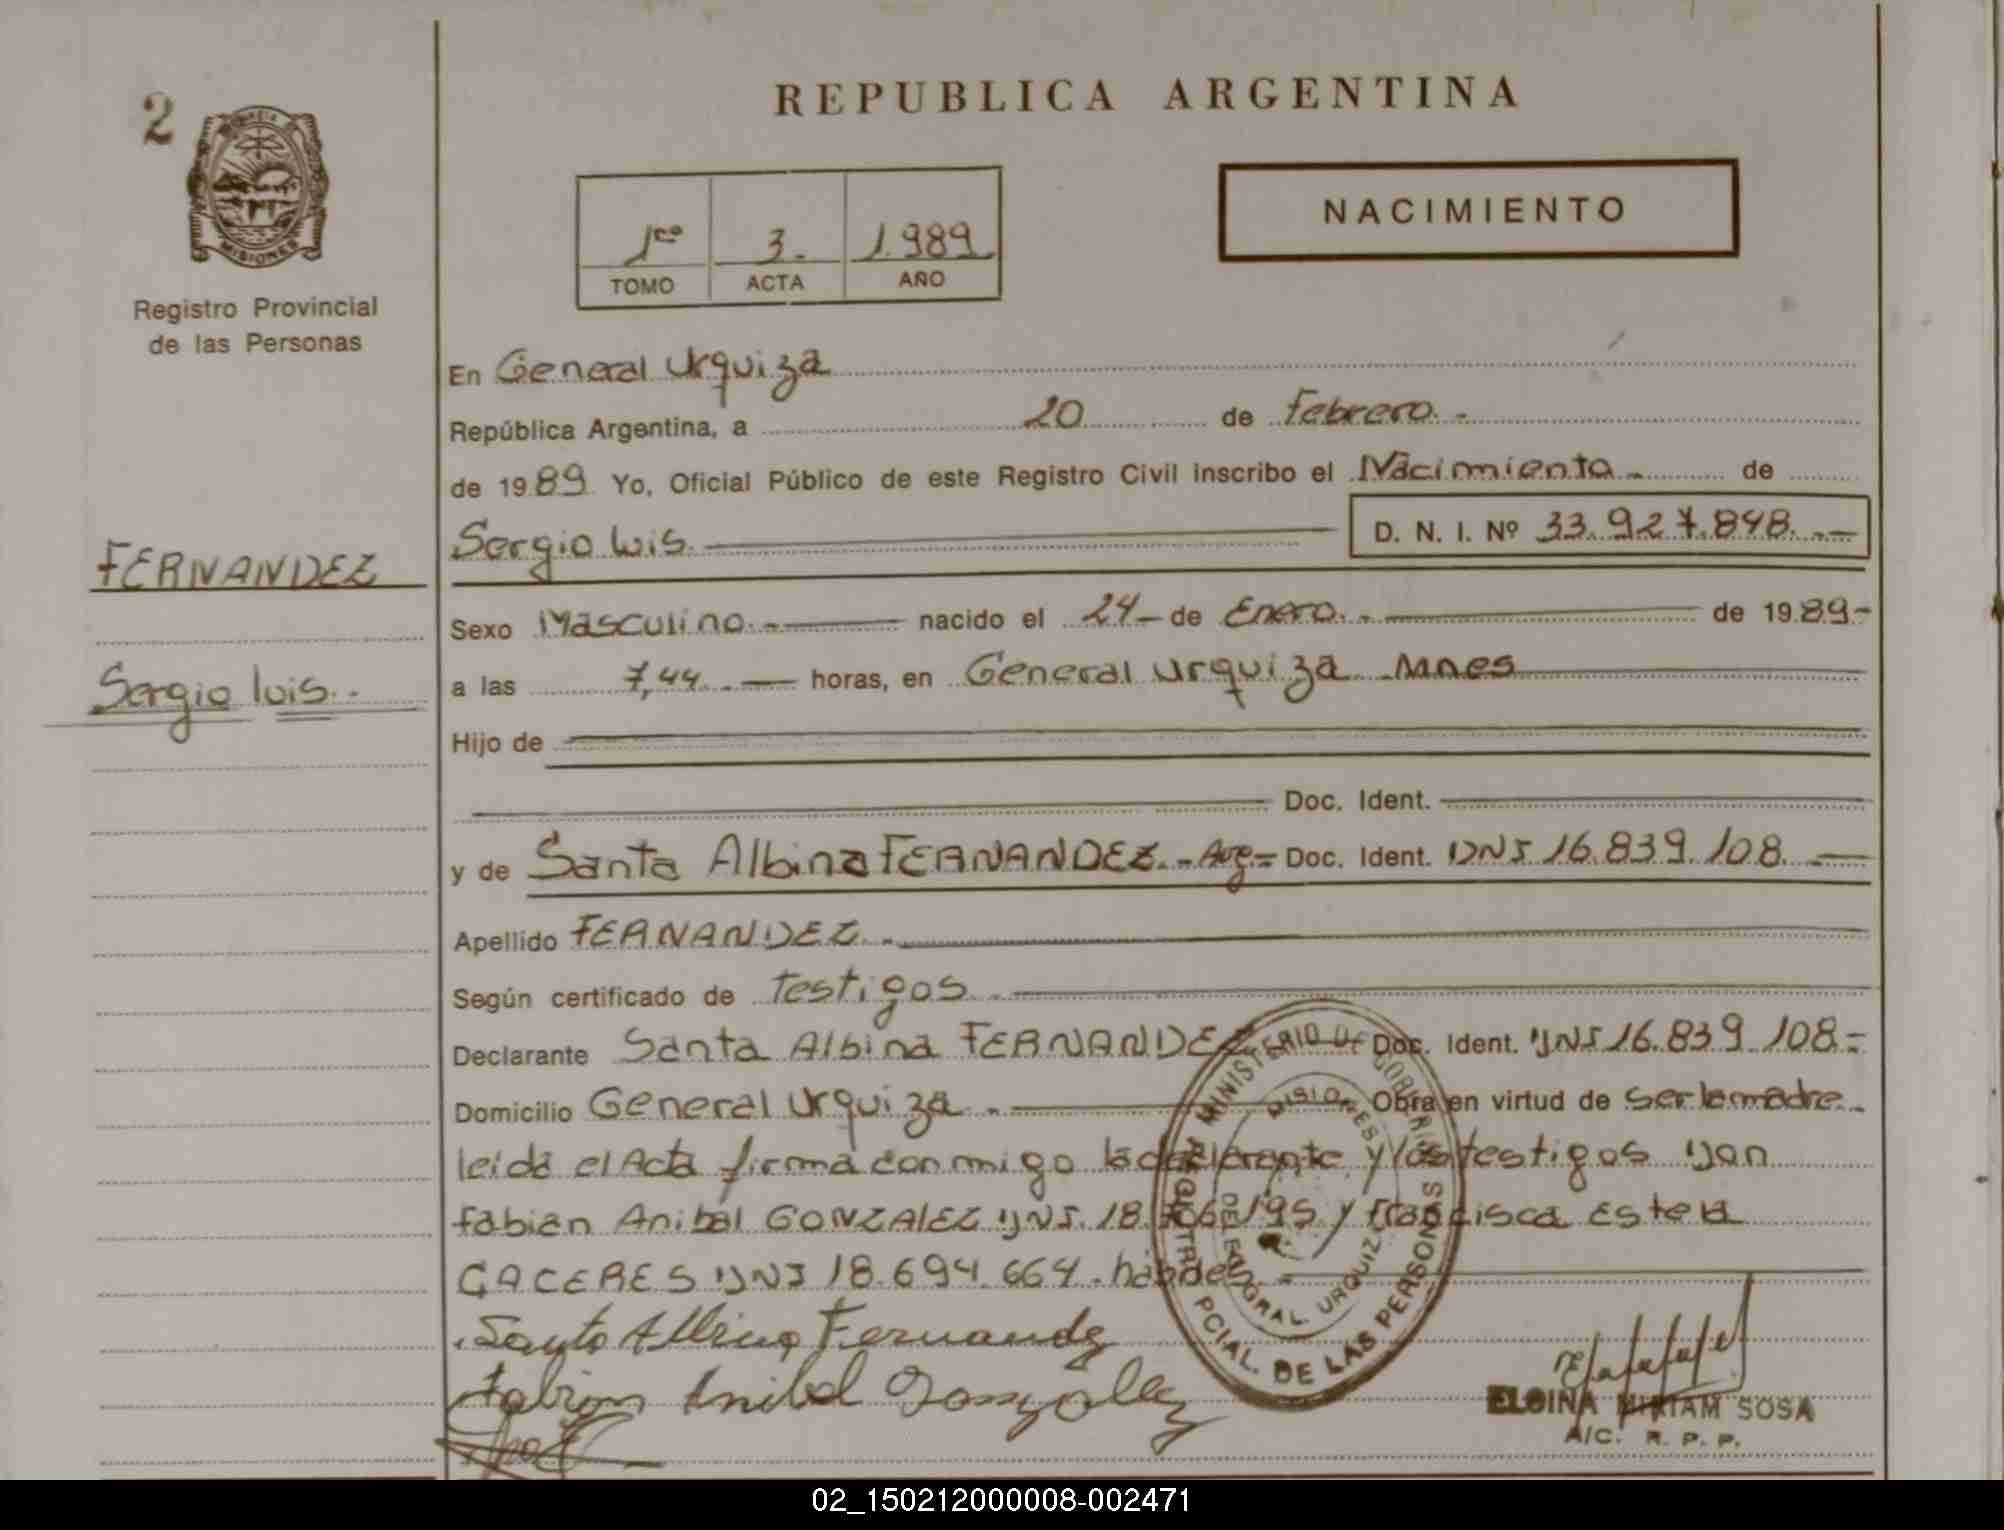 2
PROVINCIA
MISIONES
Registro Provincial
de las Personas
FERNANDEZ
Sergio luis.-
REPUBLICA ARGENTINA
1ro 3.- 1.989
TOMO ACTA AÑO
NACIMIENTO
En General Urquiza
República Argentina, a 20 de Febrero.-
de 1989 Yo, Oficial Público de este Registro Civil inscribo el Nacimiento.- de
Sergio luis. D. N. I. Nº 33.927.848.-
Sexo Masculino.- nacido el 24- de Enero.- de 1989-
a las 7,44.- horas, en General Urquiza Mnes
Hijo de
Doc. Ident.
y de Santa Albina FERNANDEZ.- Arg.= Doc. Ident. DNI 16.839.108.
Apellido FERNANDEZ.-
Según certificado de testigos.-
Declarante Santa Albina FERNANDEZ Doc. Ident. DNI 16.839.108.=
Domicilio General Urquiza.- Obra en virtud de ser la madre.-
leida el Acta firma conmigo la declarante y los testigos Don
fabian Anibal GONZALEZ DNI. 18. 195 y francisca Estela
CACERES DNI 18.694.664. habdes.-
Santa Albina Fernandez
Fabian Anibal Gonzalez
MINISTERIO DE GOBIERNO
MISIONES
REGISTRO PCIAL. DE LAS PERSONAS
GRAL. URQUIZA
ELOINA MIRIAM SOSA
A/C. R. P. P.
02_150212000008-002471